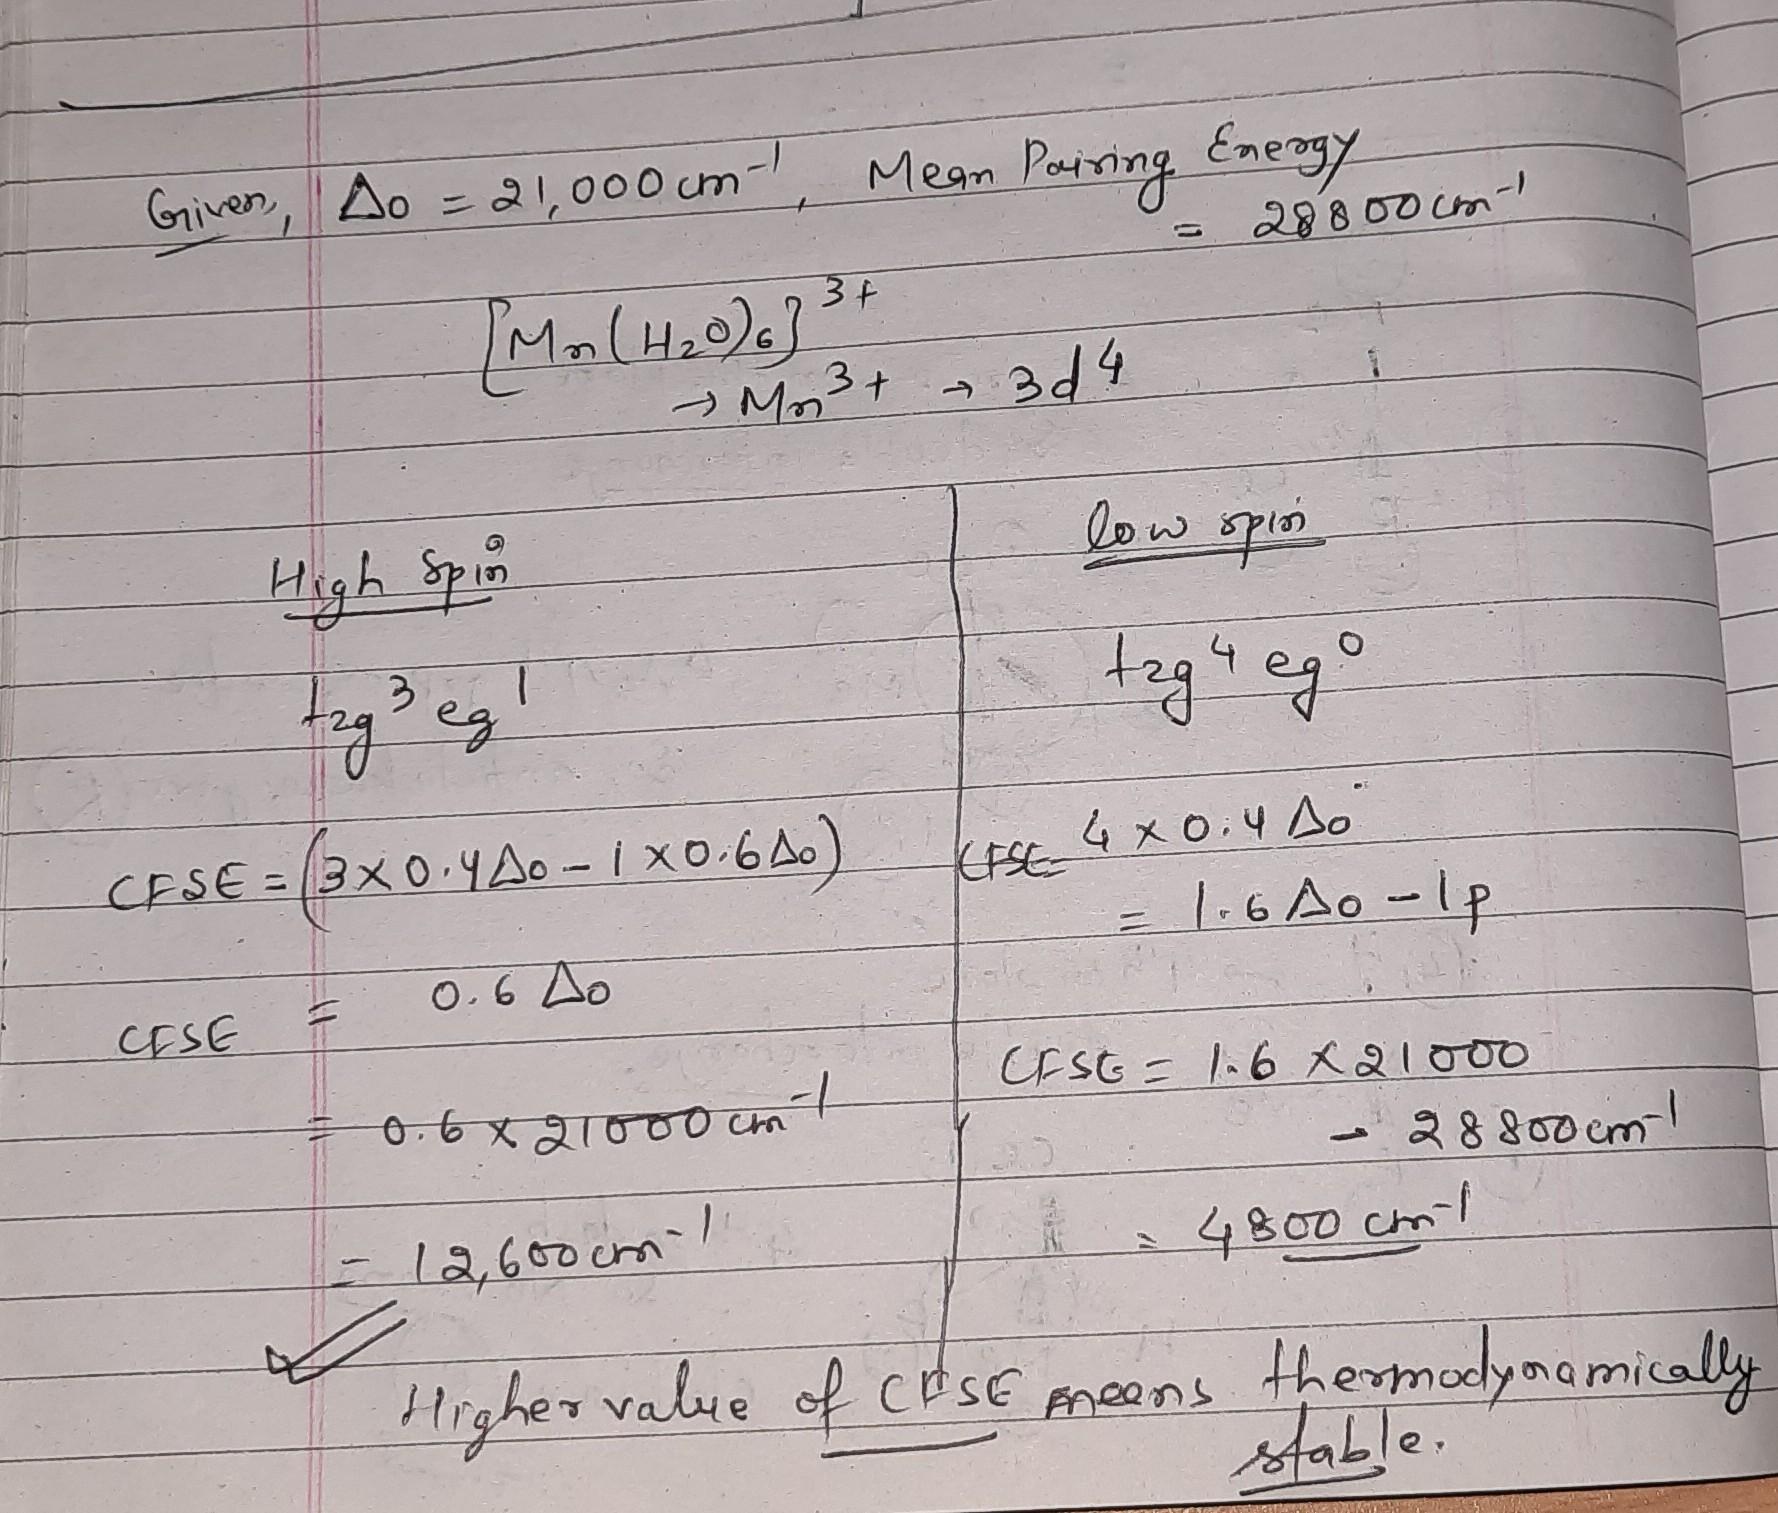 Given, Δo = 21,000 cm⁻¹, Mean Pairing Energy
= 28800 cm⁻¹
[Mn(H₂O)₆]³⁺
→ Mn³⁺ → 3d⁴
High Spin
t₂g³ eg¹
CFSE = (3 x 0.4 Δo - 1 x 0.6 Δo)
CFSE = 0.6 Δo
= 0.6 x 21000 cm⁻¹
= 12,600 cm⁻¹
low spin
t₂g⁴ eg⁰
CFSE = 4 x 0.4 Δo
= 1.6 Δo - 1p
CFSE = 1.6 x 21000
- 28800 cm⁻¹
= 4800 cm⁻¹
Higher value of CFSE means thermodynamically
stable.